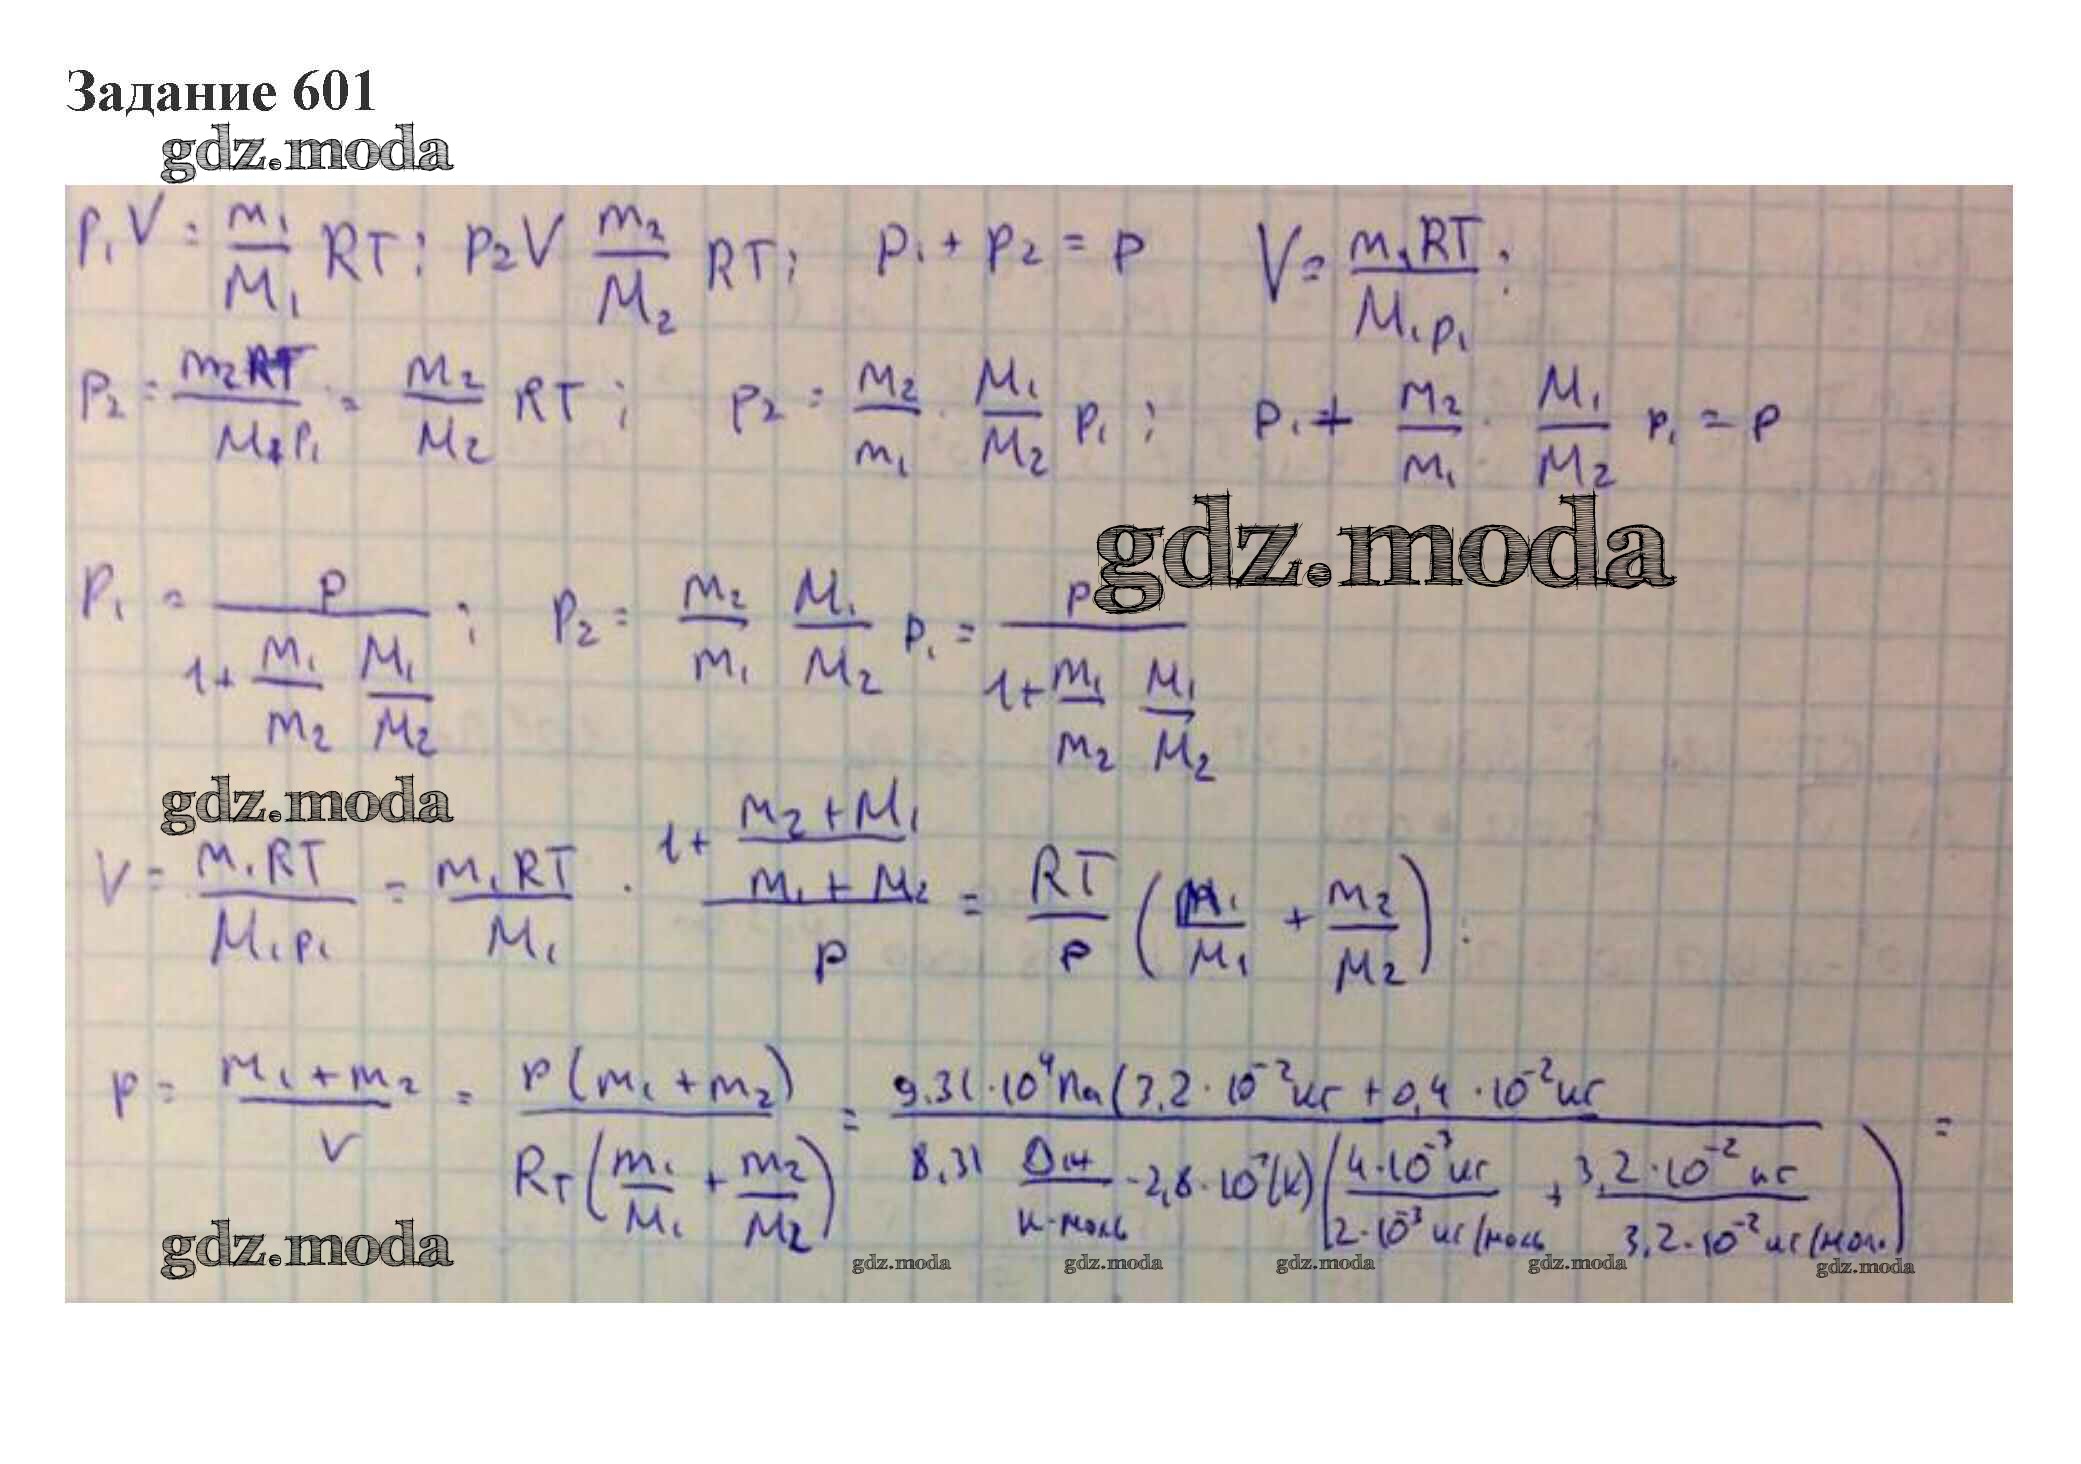 Задание 601
gdz.moda
p₁V = m₁/M₁ RT; p₂V m₂/M₂ RT; p₁ + p₂ = p V = m₁RT/M₁p₁;
p₂ = m₂RT/M₁p₁ = m₂/M₂ RT; p₂ = m₂/m₁ · M₁/M₂ p₁; p₁ + m₂/m₁ · M₁/M₂ p₁ = p
gdz.moda
p₁ = p/(1 + m₁/m₂ M₁/M₂); p₂ = m₂/m₁ M₁/M₂ p₁ = p/(1 + m₁/m₂ M₁/M₂)
gdz.moda
V = m₁RT/M₁p₁ = m₁RT/M₁ · (1 + (m₂ + M₁)/(m₁ + M₂))/p = RT/p (m₁/M₁ + m₂/M₂);
p = (m₁ + m₂)/V = p(m₁ + m₂)/RT(m₁/M₁ + m₂/M₂) = 9,31·10⁴Па(3,2·10⁻²кг + 0,4·10⁻²кг / 8,31 Дж/К·моль · 2,8·10²(К)(4·10⁻³кг/2·10⁻³кг/моль + 3,2·10⁻²кг/3,2·10⁻²кг/мол.) =
gdz.moda
gdz.moda gdz.moda gdz.moda gdz.moda gdz.moda